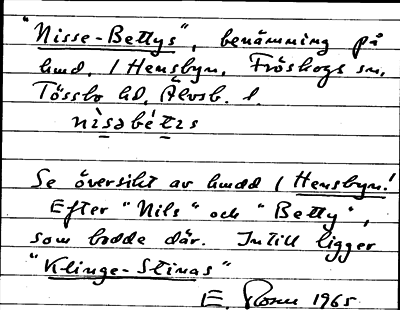 "Nisse-Bettys", benämning på
hmd. i Hensbyn, Fröskogs sn,
Tössbo hd, Älvsb. l.
nìsəbét̄is
Se översikt av hmdd i Hensbyn!
Efter "Nils" och "Betty",
som bodde där. Intill ligger
"Klinge-Stinas"
E. Rosén 1965